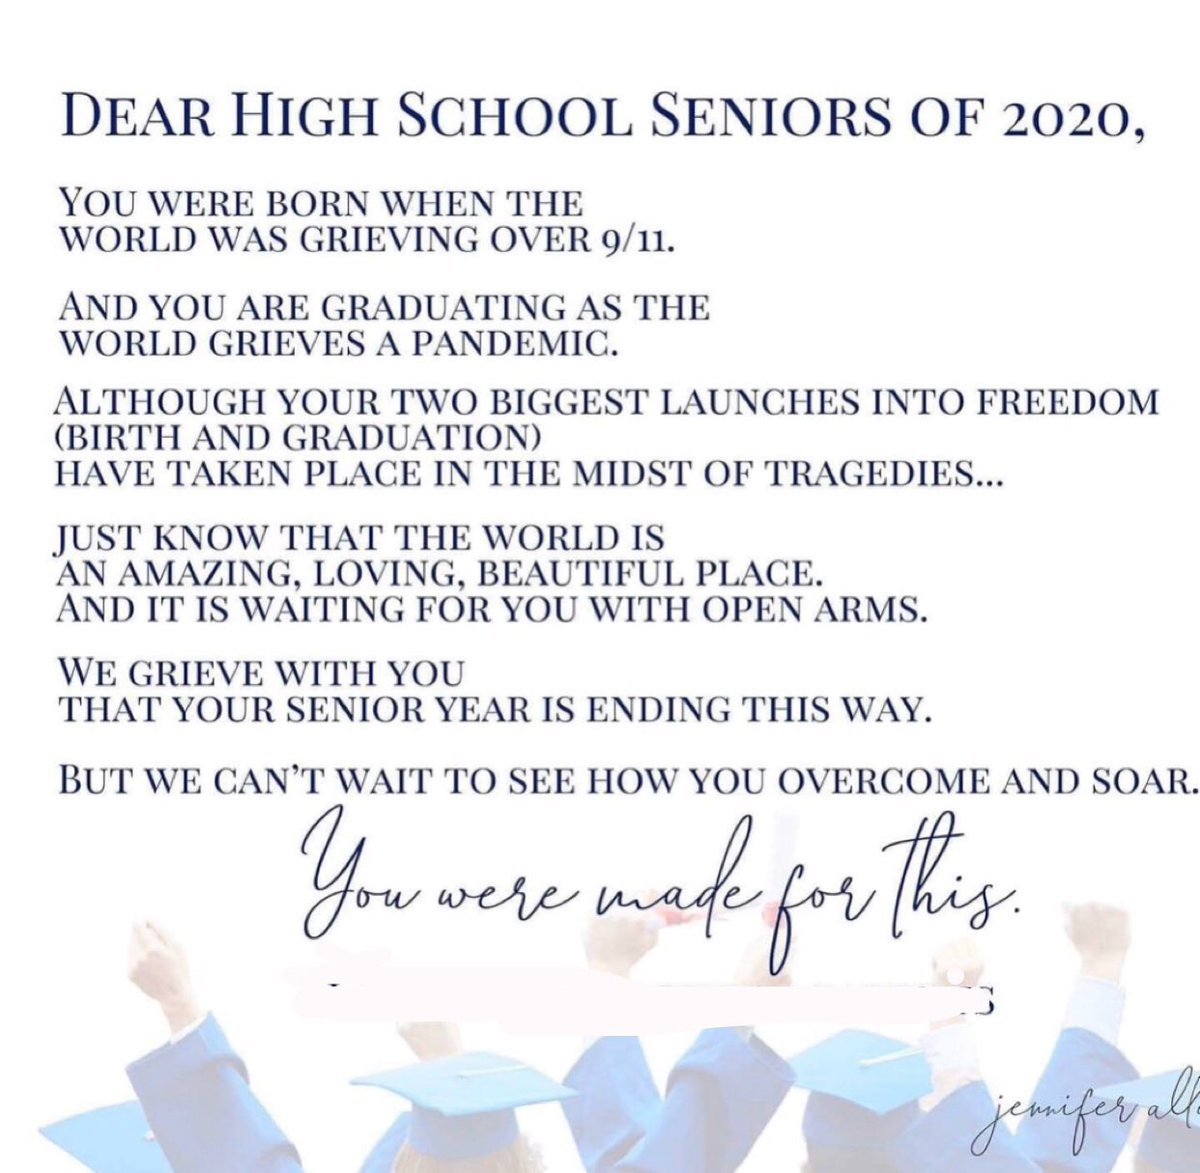 Dear High School Seniors of 2020,
You were born when the
world was grieving over 9/11.
And you are graduating as the
world grieves a pandemic.
Although your two biggest launches into freedom
(birth and graduation)
have taken place in the midst of tragedies...
just know that the world is
an amazing, loving, beautiful place.
And it is waiting for you with open arms.
We grieve with you
that your senior year is ending this way.
But we can't wait to see how you overcome and soar.
You were made for this.
jennifer